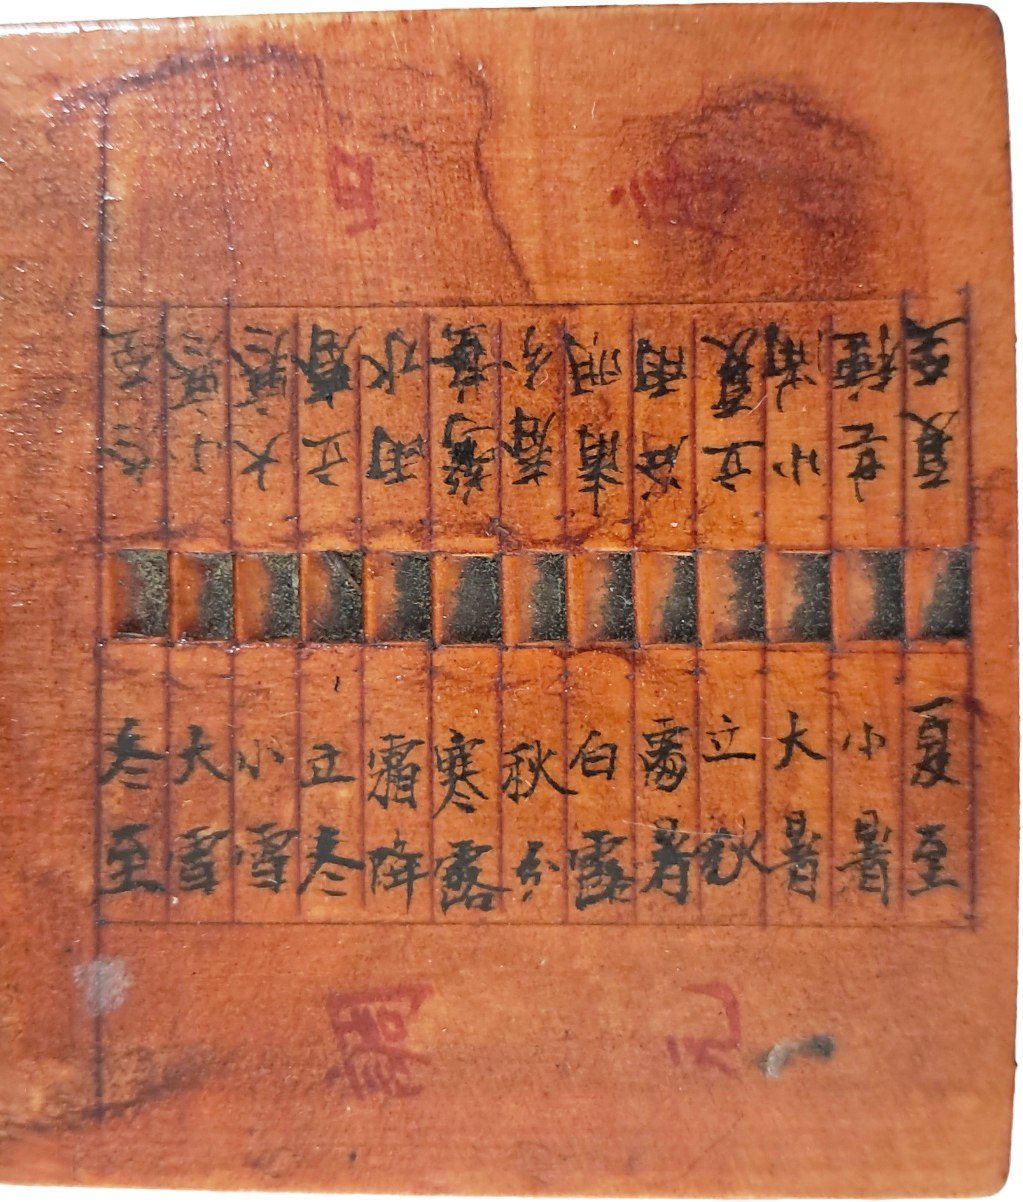 夏至
小暑
大暑
立秋
處暑
白露
秋分
寒露
霜降
立冬
小雪
大雪
冬至
冬至
小寒
大寒
立春
雨水
驚蟄
春分
清明
谷雨
立夏
小滿
芒種
夏至